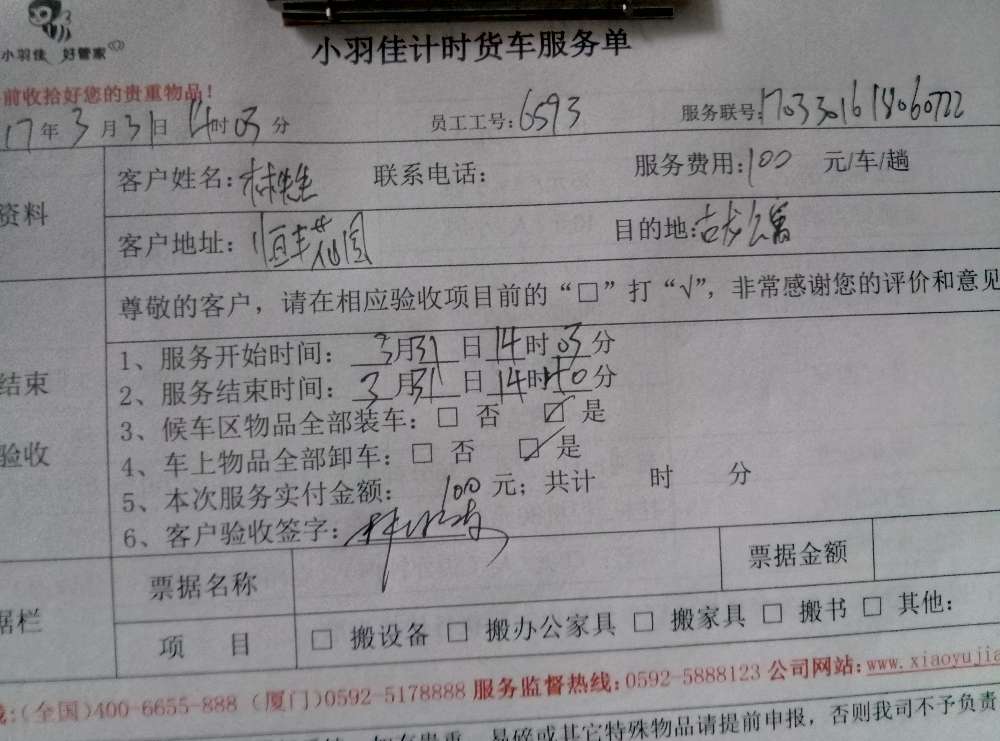 小羽佳计时货车服务单
小羽佳 好管家
前收拾好您的贵重物品！
17年3月31日14时03分 员工工号:6593 服务联号:1703301618060722
资料 客户姓名:林先生 联系电话: 服务费用:100 元/车/趟
客户地址:恒丰花园 目的地:古龙公寓
尊敬的客户，请在相应验收项目前的“□”打“√”，非常感谢您的评价和意见
结束
验收
1、服务开始时间：3月31日14时03分
2、服务结束时间：3月31日14时10分
3、候车区物品全部装车：□ 否 ☑ 是
4、车上物品全部卸车：□ 否 ☑ 是
5、本次服务实付金额：100元；共计 时 分
6、客户验收签字：
据栏 票据名称 票据金额
项 目 □ 搬设备 □ 搬办公家具 □ 搬家具 □ 搬书 □ 其他：
线:(全国)400-6655-888 (厦门)0592-5178888 服务监督热线:0592-5888123 公司网站:www.xiaoyujia
如有贵重、易碎或其它特殊物品请提前申报，否则我司不予负责